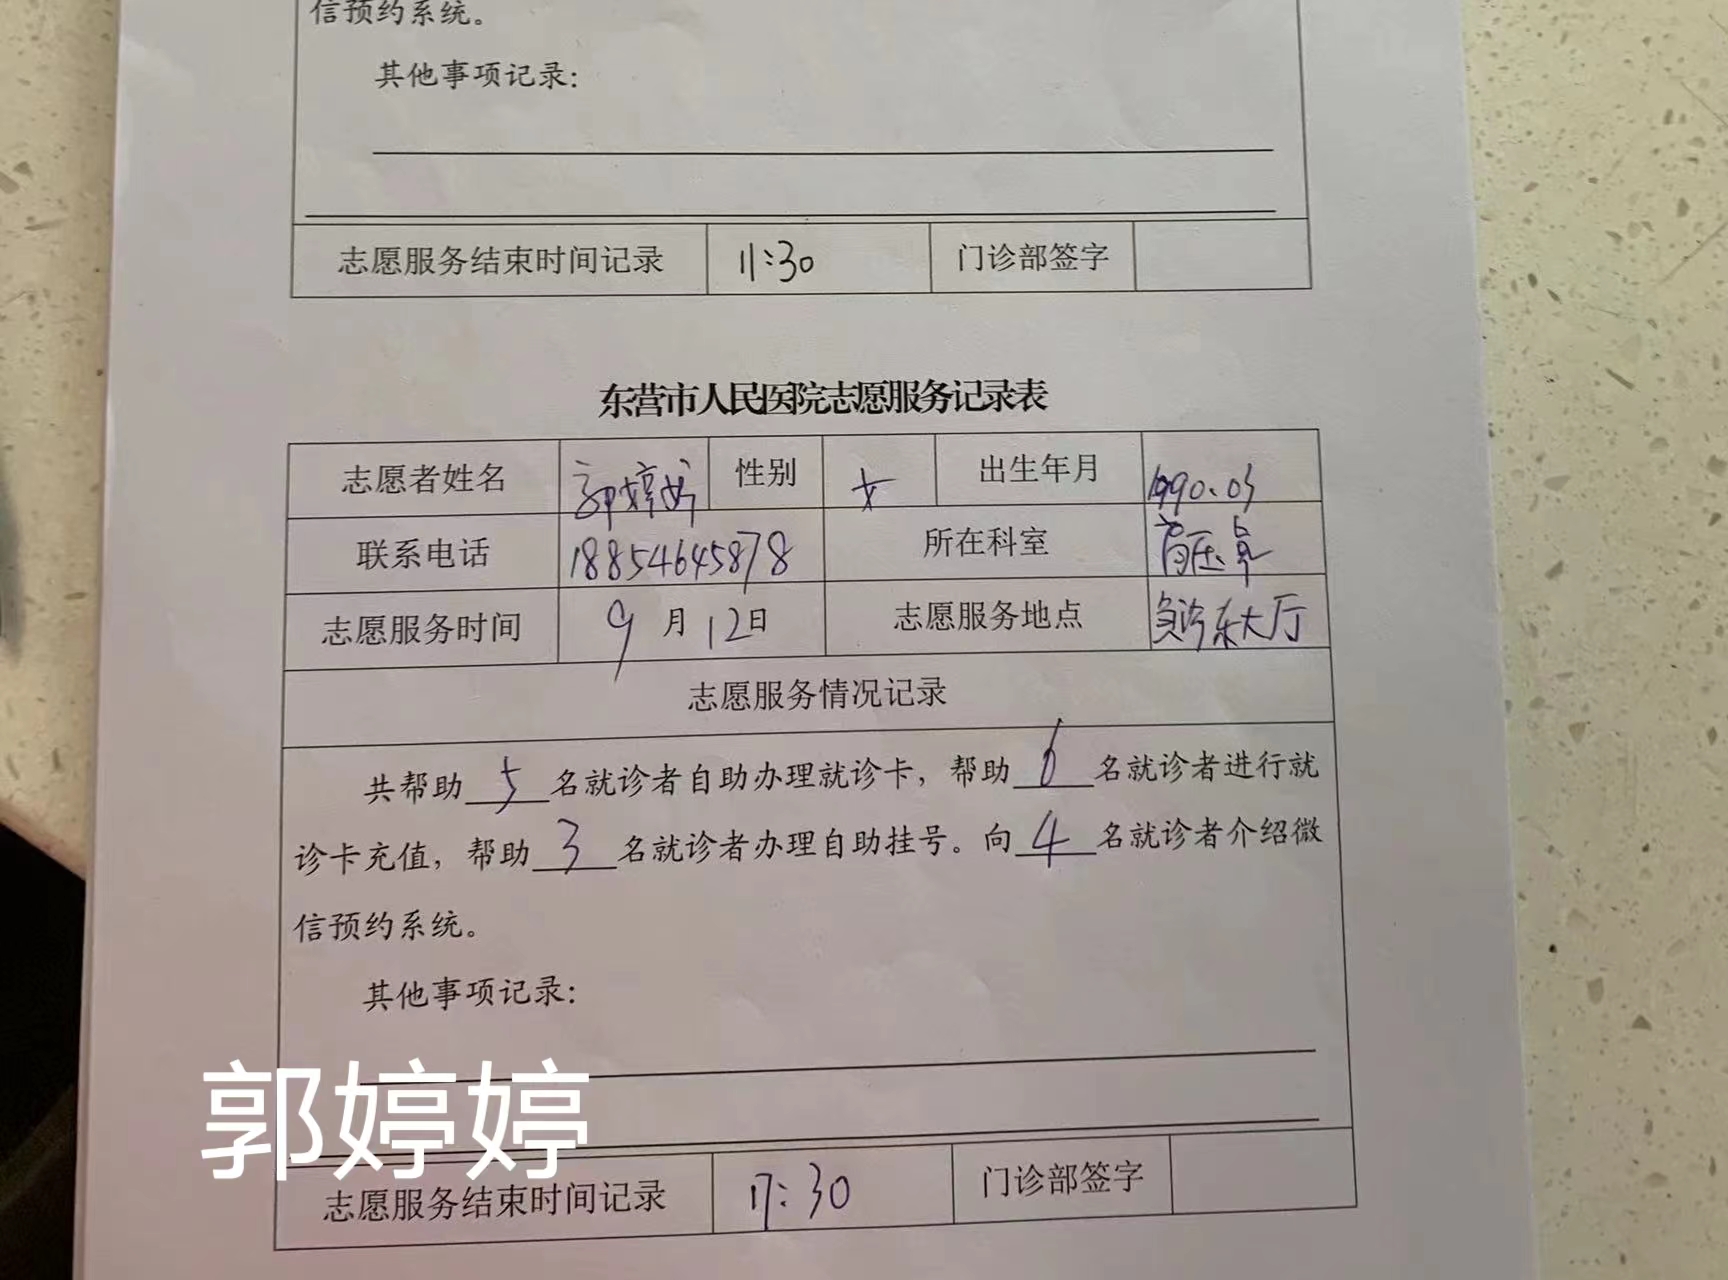 信预约系统。
其他事项记录:
志愿服务结束时间记录 11:30 门诊部签字
东营市人民医院志愿服务记录表
志愿者姓名 郭婷婷 性别 女 出生年月 1990.03
联系电话 18854645878 所在科室
志愿服务时间 9月12日 志愿服务地点 东大厅
志愿服务情况记录
共帮助 5 名就诊者自助办理就诊卡，帮助 6 名就诊者进行就
诊卡充值，帮助 3 名就诊者办理自助挂号。向 4 名就诊者介绍微
信预约系统。
其他事项记录:
郭婷婷
志愿服务结束时间记录 17:30 门诊部签字